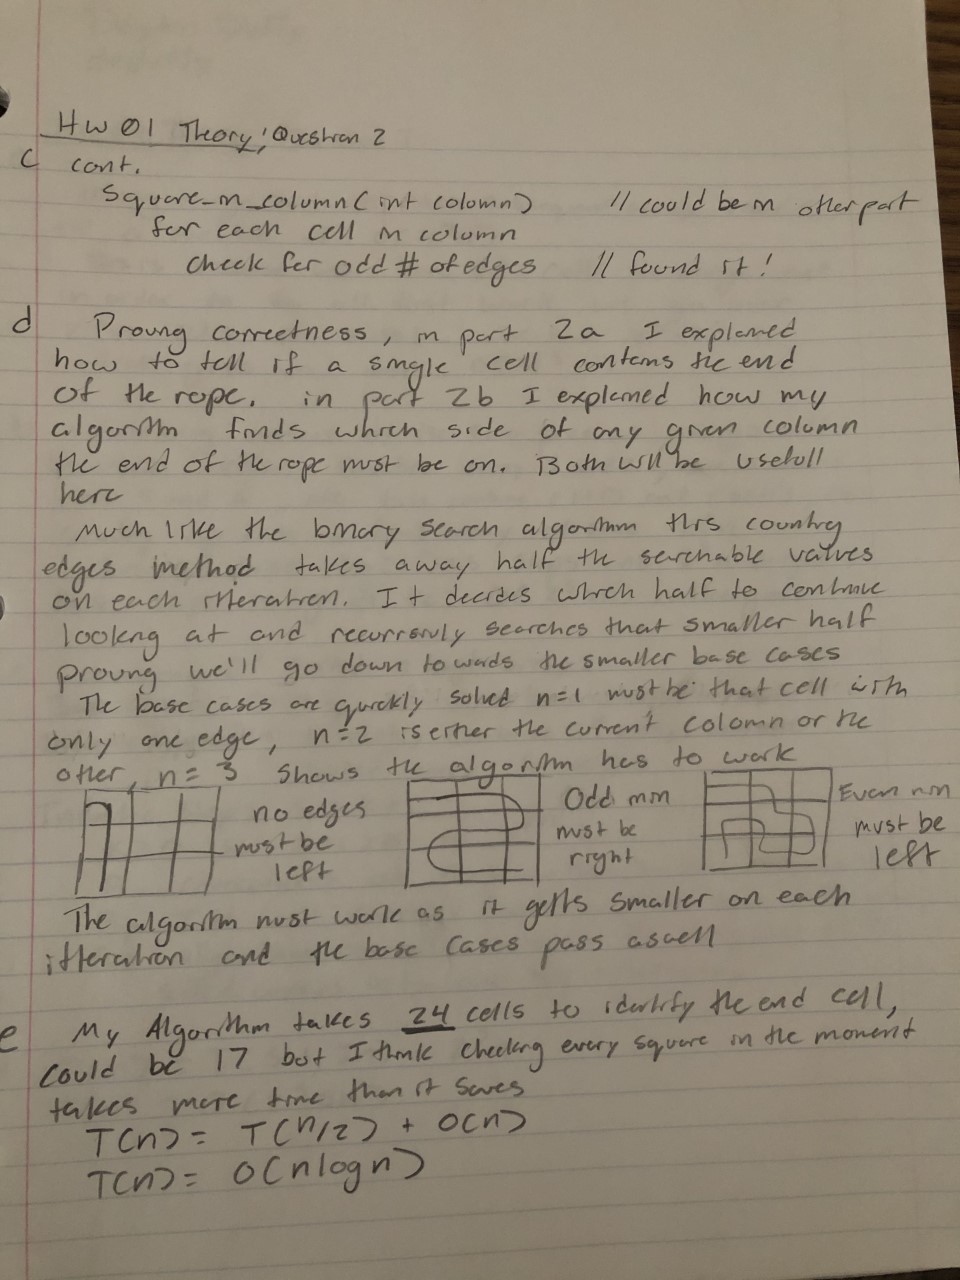 HW 01 Theory, Question 2
c cont.
square_in_column(int column) // could be in other part
for each cell in column
check for odd # of edges // found it!
d Proving correctness, in part 2a I explained
how to tell if a single cell contains the end
of the rope. in part 2b I explained how my
algorithm finds which side of any given column
the end of the rope must be on. Both will be usefull
here
Much like the binary search algorithm this counting
edges method takes away half the searchable values
on each itteration. It decides which half to continue
looking at and recurrsivly searches that smaller half
proving we'll go down towards the smaller base cases
The base cases are quickly solved n=1 must be that cell with
only one edge, n=2 is either the current colomn or the
other, n=3 shows the algorithm has to work
no edges
must be
left
Odd
must be
right
Even
must be
left
The algorithm must work as it getts smaller on each
itteration and the base cases pass aswell
e My Algorithm takes 24 cells to identify the end cell,
could be 17 but I think checking every square in the moment
takes more time than it saves
T(n) = T(n/2) + O(n)
T(n) = O(n log n)